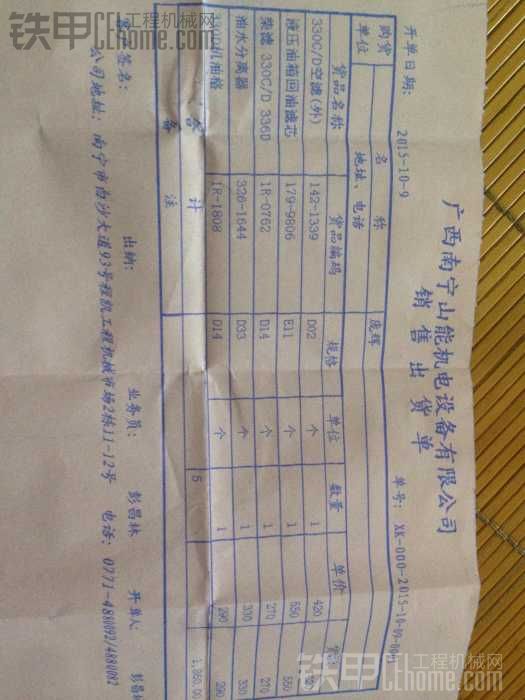 广西南宁山能机电设备有限公司
销售出货单
开单日期: 2015-10-9 单号: XK-000-2015-10-09-
购货单位 名称 庞辉
地址、电话
货品名称 货品编码 规格 单位 数量 单价
330C/D空滤(外) 142-1339 D02 个 1 420
液压油箱回油滤芯 179-9806 E11 个 1 550 550
柴滤 330C/D 336D 1R-0762 D14 个 1 270 270
油水分离器 326-1644 D33 个 1 330 330
机油格 1R-1808 D14 个 1 290 290
合计 5 1,860.00
备注
签名: 出纳: 业务员: 彭昌林 开单人: 彭昌林
公司地址: 南宁市白沙大道93号程凯工程机械市场2栋11-12号 电话: 0771-4880092/4880082
铁甲工程机械网
Cthome.com
铁甲工程机械网
Cthome.com